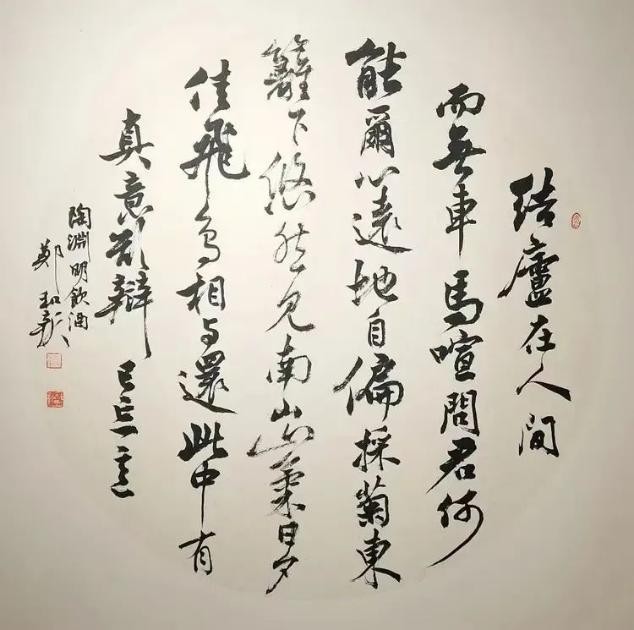 結廬在人間
而無車馬喧問君何
能爾心遠地自偏採菊東
籬下悠然見南山山氣日夕
佳飛鳥相与還此中有
真意欲辯已忘言
陶淵明飲酒
鄭